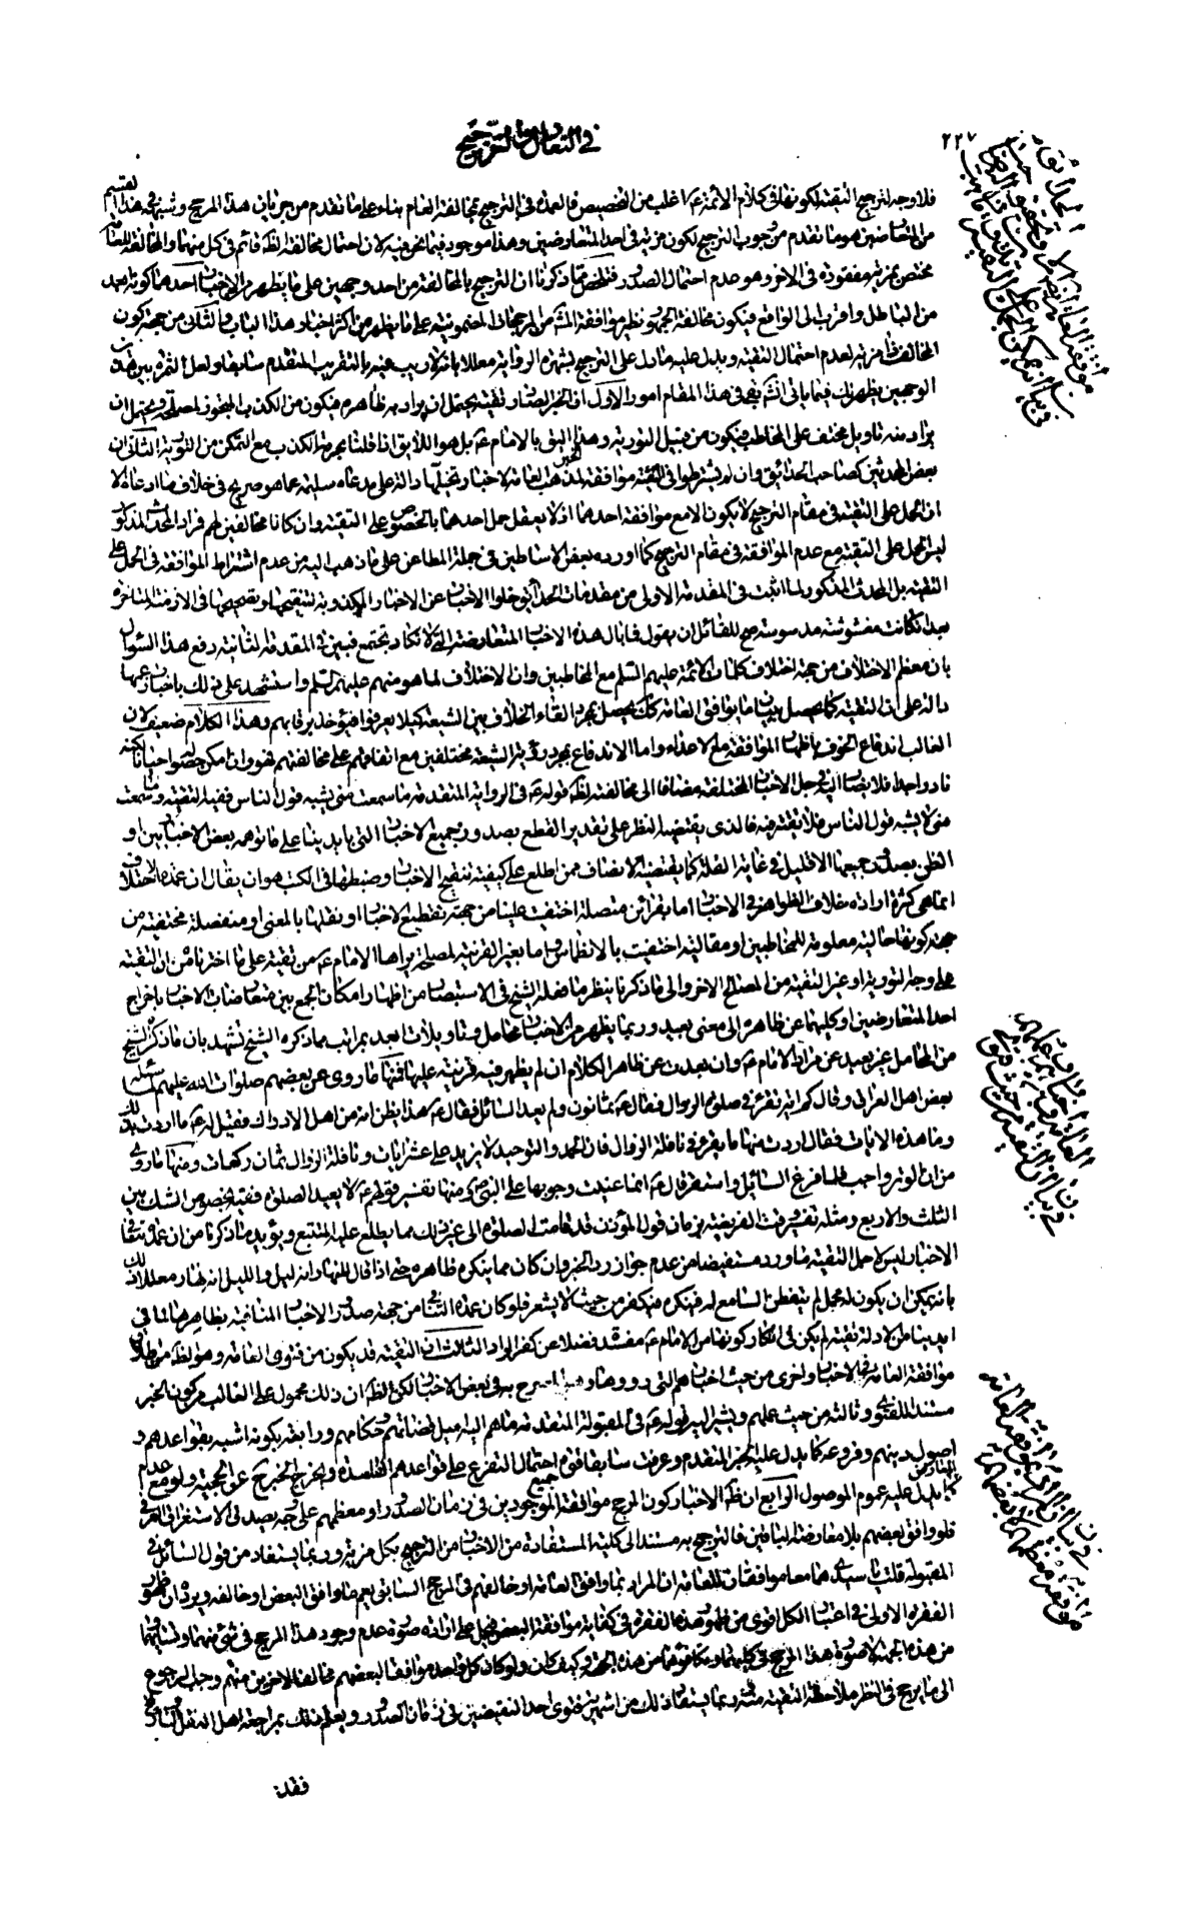 في التعادل والتراجيح
٢٢٧
فلا وجه لترجيح التقية لكونها في كلام الأئمة ع أغلب من التخصيص فالعمدة في الترجيح بمخالفة العامة بناء على ما تقدم من جريان هذا المرجح وشبهه في هذا القسم
من المتعارضين هو ما تقدم من وجوب الترجيح لكون مزية في أحد المتعارضين وهذا موجود فيما نحن فيه لأن احتمال مخالفة الظ قائم في كل منهما والمخالف للعامة
مختص بمزية مفقودة في الآخر وهو عدم احتمال الصدور فتلخص مما ذكرنا ان الترجيح بالمخالفة من أحد وجهين على ما يظهر من الأخبار أحدهما كونه أبعد
من الباطل وأقرب إلى الواقع فيكون مخالفة الجمهور نظير موافقة المشهور من المرجحات المضمونية على ما يظهر من أكثر أخبار هذا الباب والثاني من جهة كون
المخالف ذا مزية لعدم احتمال التقية ويدل عليه ما دل على الترجيح بشهرة الرواية معللا بأنه لا ريب فيه بالتقريب المتقدم سابقا ولعل الثمرة بين هذين
الوجهين يظهر لك فيما يأتي انش بقي في هذا المقام أمور الأول ان الخبر الصادر تقية يحتمل ان يراد به ظاهره فيكون من الكذب المجوز لمصلحة ويحتمل ان
يراد منه تأويل مختف على المخاطب فيكون من قبيل التورية وهذا أليق بالإمام ع بل هو اللائق إذا قلنا بحرمة الكذب مع التمكن من التورية الثاني ان
بعض المحدثين كصاحب الحدائق وان لم يشترط في التقية موافقة الخبر لمذهب العامة لأخبار تخيلها دالة على مدعاه سليمة عما هو صريح في خلاف ما ادعاه الا
ان الحمل على التقية في مقام الترجيح لا يكون الا مع موافقة أحدهما إذ لا يعقل حمل أحدهما بالخصوص على التقية وان كانا مخالفين لهم فمراد المحدث المذكور
ليس الحمل على التقية مع عدم الموافقة في مقام الترجيح كما أورده بعض الأساطين في جملة المطاعن على ما ذهب إليه من عدم اشتراط الموافقة في الحمل على
التقية بل المحدث المذكور لما أثبت في المقدمة الأولى من مقدمات الحدائق خلو الأخبار عن الأخبار المكذوبة لتنقيحها وتصحيحها في الأزمنة المتأخرة
بعد ان كانت مغشوشة مدسوسة صح للقائل ان يقول فما بال هذه الأخبار المتعارضة التي لا تكاد تجتمع فبين في المقدمة الثانية دفع هذا السؤال
بان معظم الاختلاف من جهة اختلاف كلمات الأئمة عليهم السلم مع المخاطبين وان الاختلاف انما هو منهم عليهم السلم واستشهد على ذلك بأخبار زعمها
دالة على ان التقية كما يحصل ببيان ما يوافق العامة كك يحصل بمجرد القاء الخلاف بين الشيعة كيلا يعرفوا فيؤخذ برقابهم وهذا الكلام ضعيف لأن
الغالب اندفاع الخوف بإظهار الموافقة مع الأعداء واما الاندفاع بمجرد رؤية الشيعة مختلفين مع اتفاقهم على مخالفتهم فهو وان أمكن حصوله أحيانا لكنه
نادر جدا فلا يصار إليه في جل الأخبار المختلفة مضافا إلى مخالفته لظ قوله ع في الرواية المتقدمة ما سمعت مني يشبه قول الناس ففيه التقية وما سمعت
مني لا يشبه قول الناس فلا تقية فيه فالذي يقتضيه النظر على تقدير القطع بصدور جميع الأخبار التي بأيدينا على ما توهمه بعض الأخباريين أو
الظن بصدور جميعها الا قليل في غاية القلة كما يقتضيه الإنصاف ممن اطلع على كيفية تنقيح الأخبار وضبطها في الكتب هو ان يقال ان عمدة الاختلاف
انما هي كثرة إرادة خلاف الظواهر في الأخبار اما بقرائن متصلة اختفت علينا من جهة تقطيع الأخبار أو نقلها بالمعنى أو منفصلة مختفية من
جهة كونها حالية معلومة للمخاطبين أو مقالية اختفيت بالانطماس واما بغير القرينة لمصلحة يراها الإمام ع من تقية على ما اخترناه من ان التقية
على وجه التورية أو غير التقية من المصالح الأخر وإلى ما ذكرنا ينظر ما فعله الشيخ في الاستبصار من إظهار إمكان الجمع بين متعارضات الأخبار بإخراج
أحد المتعارضين أو كليهما عن ظاهره إلى معنى بعيد وربما يظهر من الأخبار محامل وتأويلات أبعد بمراتب مما ذكره الشيخ تشهد بان ما ذكره الشيخ
من المحامل غير بعيد عن مراد الإمام ع وان بعدت عن ظاهر الكلام ان لم يظهر فيه قرينة عليها فمنها ما روى عن بعضهم صلوات الله عليهم لما سئله
بعض أهل العراق وقال كم آية تقرأ في صلوة الزوال فقال ع ثمانون ولم يعد السائل فقال ع هذا يظن انه من أهل الإدراك فقيل له ع ما أردت بذلك
وما هذه الآيات فقال أردت منها ما يقرأ في نافلة الزوال فان الحمد والتوحيد لا يزيد على عشر آيات ونافلة الزوال ثمان ركعات ومنها ما روى
من ان الوتر واجب فلما فرغ السائل واستفسر قال ع انما عنيت وجوبها على النبي ص ومنها تفسير قولهم ع لا يعيد الصلوة فقيه بخصوص الشك بين
الثلث والأربع ومثله تفسير وقت الفريضة بزمان قول المؤذن قد قامت الصلوة إلى غير ذلك مما يطلع عليه المتتبع ويؤيد ما ذكرنا من ان عمدة تنافي
الأخبار ليس لأجل التقية ما ورد مستفيضا من عدم جواز رد الخبر وان كان مما ينكره ظاهره حتى إذا قال للنهار انه ليل والليل انه نهار معللا ذلك
بأنه يمكن ان يكون له محمل لم يتفطن السامع له فينكره فيكفر من حيث لا يشعر فلو كان عمدة التنافي من جهة صدور الأخبار المنافية بظاهرها لما في
أيدينا من الأدلة تقية لم يكن في إنكار كونها من الإمام ع مفسدة فضلا عن كفر الراد الثالث ان التقية قد يكون من فتوى العامة وهو الظ من إطلاق
موافقة العامة في الأخبار وأخرى من حيث أخبارهم التي رووها وهو المصرح به في بعض الأخبار لكن الظ ان ذلك محمول على الغالب من كون الخبر
مستندا للفتوى وثالثة من حيث عملهم ويشير إليه قوله ع في المقبولة المتقدمة ما هم إليه أميل قضاتهم وحكامهم ورابعة بكونه أشبه بقواعدهم و
أصول دينهم وفروعه كما يدل عليه الخبر المتقدم وعرفت سابقا قوة احتمال التفرع على قواعدهم الفاسدة ويخرج الخبر ح عن الحجية ولو مع عدم المعارض
كما يدل عليه عموم الموصول الرابع ان ظ الأخبار كون المرجح موافقة جميع الموجودين في زمان الصدور أو معظمهم على وجه يصدق الاستغراق العرفي
فلو وافق بعضهم بلا معارضة الباقين فالترجيح به مستند إلى الكلية المستفادة من الأخبار من الترجيح بكل مزية وربما يستفاد من قول السائل في
المقبولة قلت يا سيدي هما معا موافقان للعامة ان المراد بما وافق العامة أو خالفهم في المرجح السابق يعم ما وافق البعض أو خالفه ويرده ان ظهور
الفقرة الأولى في اعتبار الكل أقوى من ظهور هذه الفقرة في كفاية موافقة البعض فيحمل على إرادة صورة عدم وجود هذا المرجح في شيء منهما وتساويهما
من هذه الجهة لا صورة وجود هذا المرجح في كليهما وتكافؤهما من هذه الجهة وكيف كان فلو كان كل واحد موافقا لبعضهم مخالفا للآخرين منهم وجب الرجوع
إلى ما يرجح في النظر ملاحظة التقية منه وربما يستفاد ذلك من أشهرية فتوى أحد النقيضين في زمان الصدور ويعلم ذلك بمراجعة أهل النقل والتاريخ
فقد